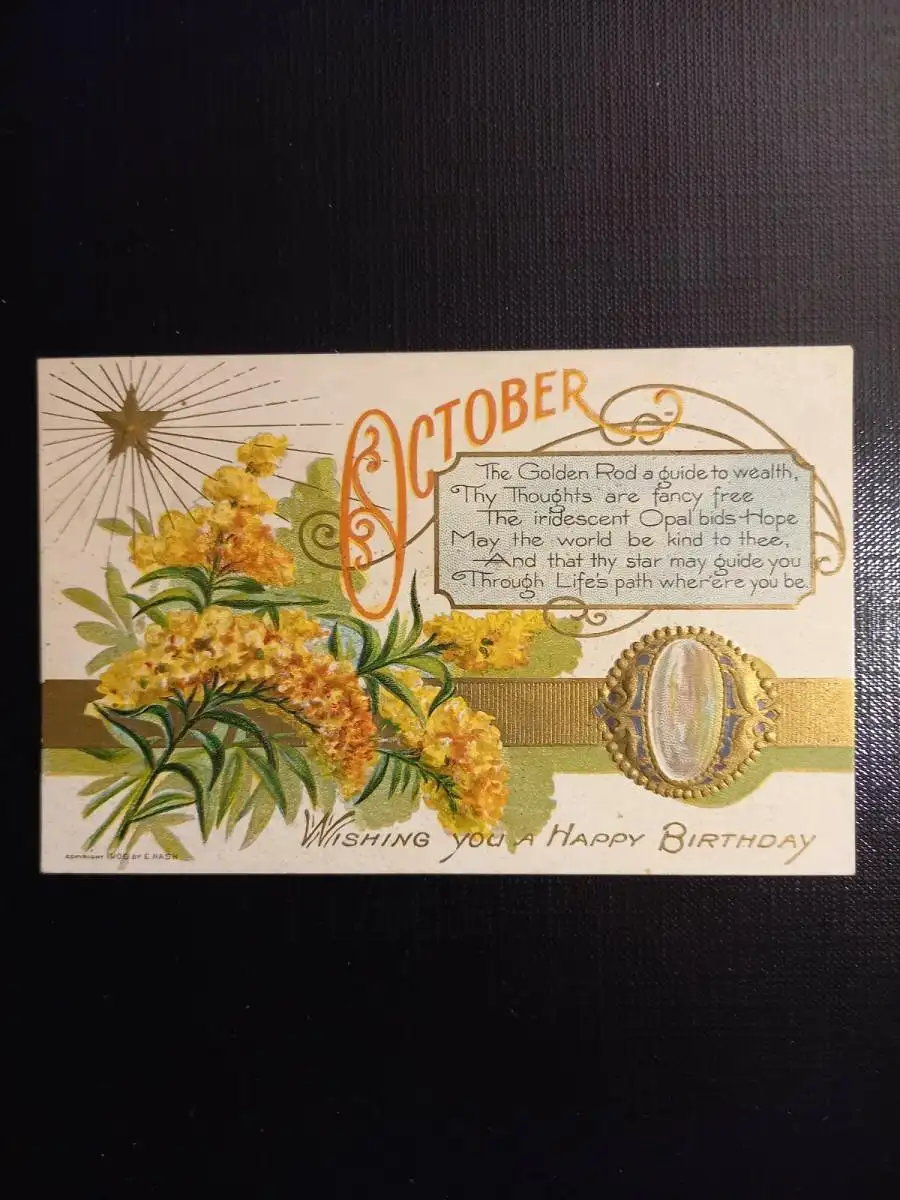 OCTOBER
The Golden Rod a guide to wealth,
Thy Thoughts are fancy free
The iridescent Opal bids Hope
May the world be kind to thee,
And that thy star may guide you
Through Life's path where'ere you be.
WISHING YOU A HAPPY BIRTHDAY
COPYRIGHT BY E. NASH